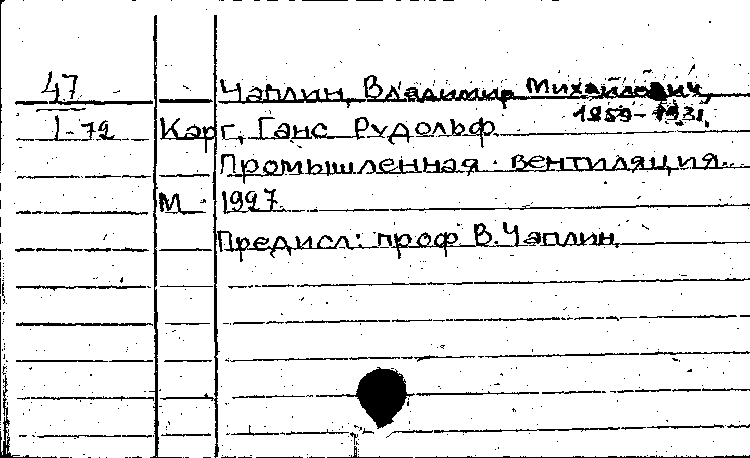 47 Чаплин, Владимир Михайлович,
1859-1931.
I-72 Карг, Ганс Рудольф
Промышленная вентиляция.
М. 1927.
Предисл: проф В. Чаплин